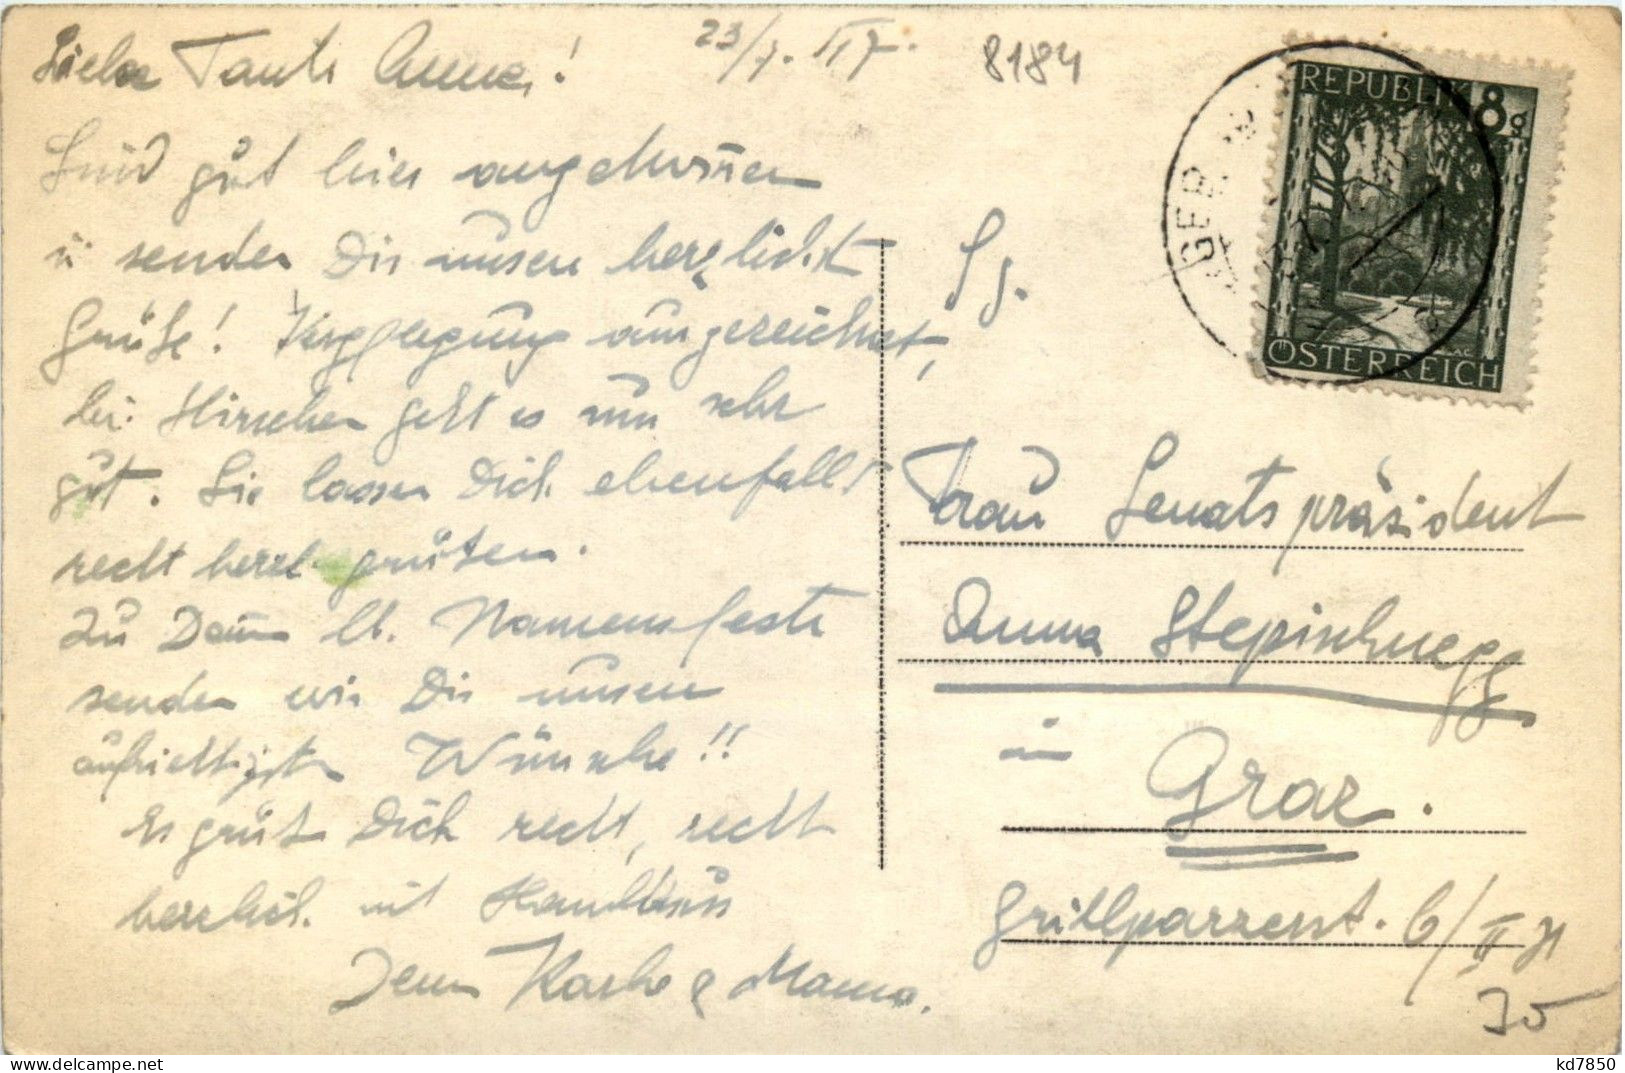 23/7. 47.
8184
Liebe Tante Anna!
Sind gut hier angekommen
u. senden Dir unsere herzlichst
Grüße! Verpflegung ausgezeichnet,
bei Hirschen geht es uns sehr
gut. Sie lassen Dich ebenfalls
recht herzl. grüßen.
Zu Deinem lb. Namensfeste
senden wir Dir unsere
aufrichtigsten Wünsche!!
Es grüßt Dich recht, recht
herzlich mit Handkuss
Dein & Mama.
REPUBLIK 8g
ÖSTERREICH
Frau Senatspräsident
Anna Stepischnegg
in
Graz.
Grillparzerst. 6/II
35
kd7850